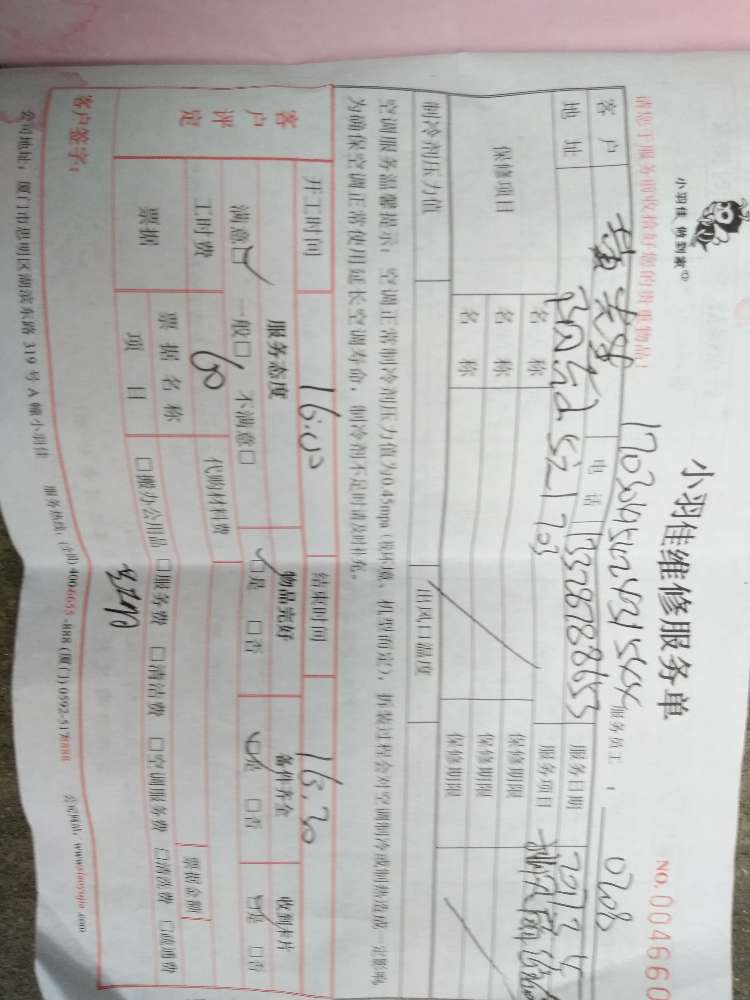 小羽佳 做到家
小羽佳维修服务单
NO.004660
请您于服务前收检好您的贵重物品!
170304502431544
服务员工: 0708
客户
电话 13328788653
服务日期
地址
521703
服务项目
保修项目
名称
保修期限
名称
保修期限
名称
保修期限
制冷剂压力值
出风口温度
空调服务温馨提示:空调正常制冷剂压力值为0.45mpa(视环境、机型而定),拆装过程会对空调制冷或制热造成一定影响,
为确保空调正常使用延长空调寿命,制冷剂不足时请及时补充。
开工时间 16:00 结束时间 16:30
客户评定
服务态度 物品完好 备件齐全 收到木片
满意□ 一般□ 不满意□ □是 □否 □是 □否 □是 □否
工时费 60 代购材料费
票据 票据名称 票据金额
项目 □搬办公用品 □服务费 □清洁费 □空调服务费 □清洗费 □疏通费
客户签字:
公司地址:厦门市思明区湖滨东路 319 号 A 幢小羽佳 服务热线:(全国)4006655-888 (厦门)0592-5178888 公司网站:www.xiaoyujia.com